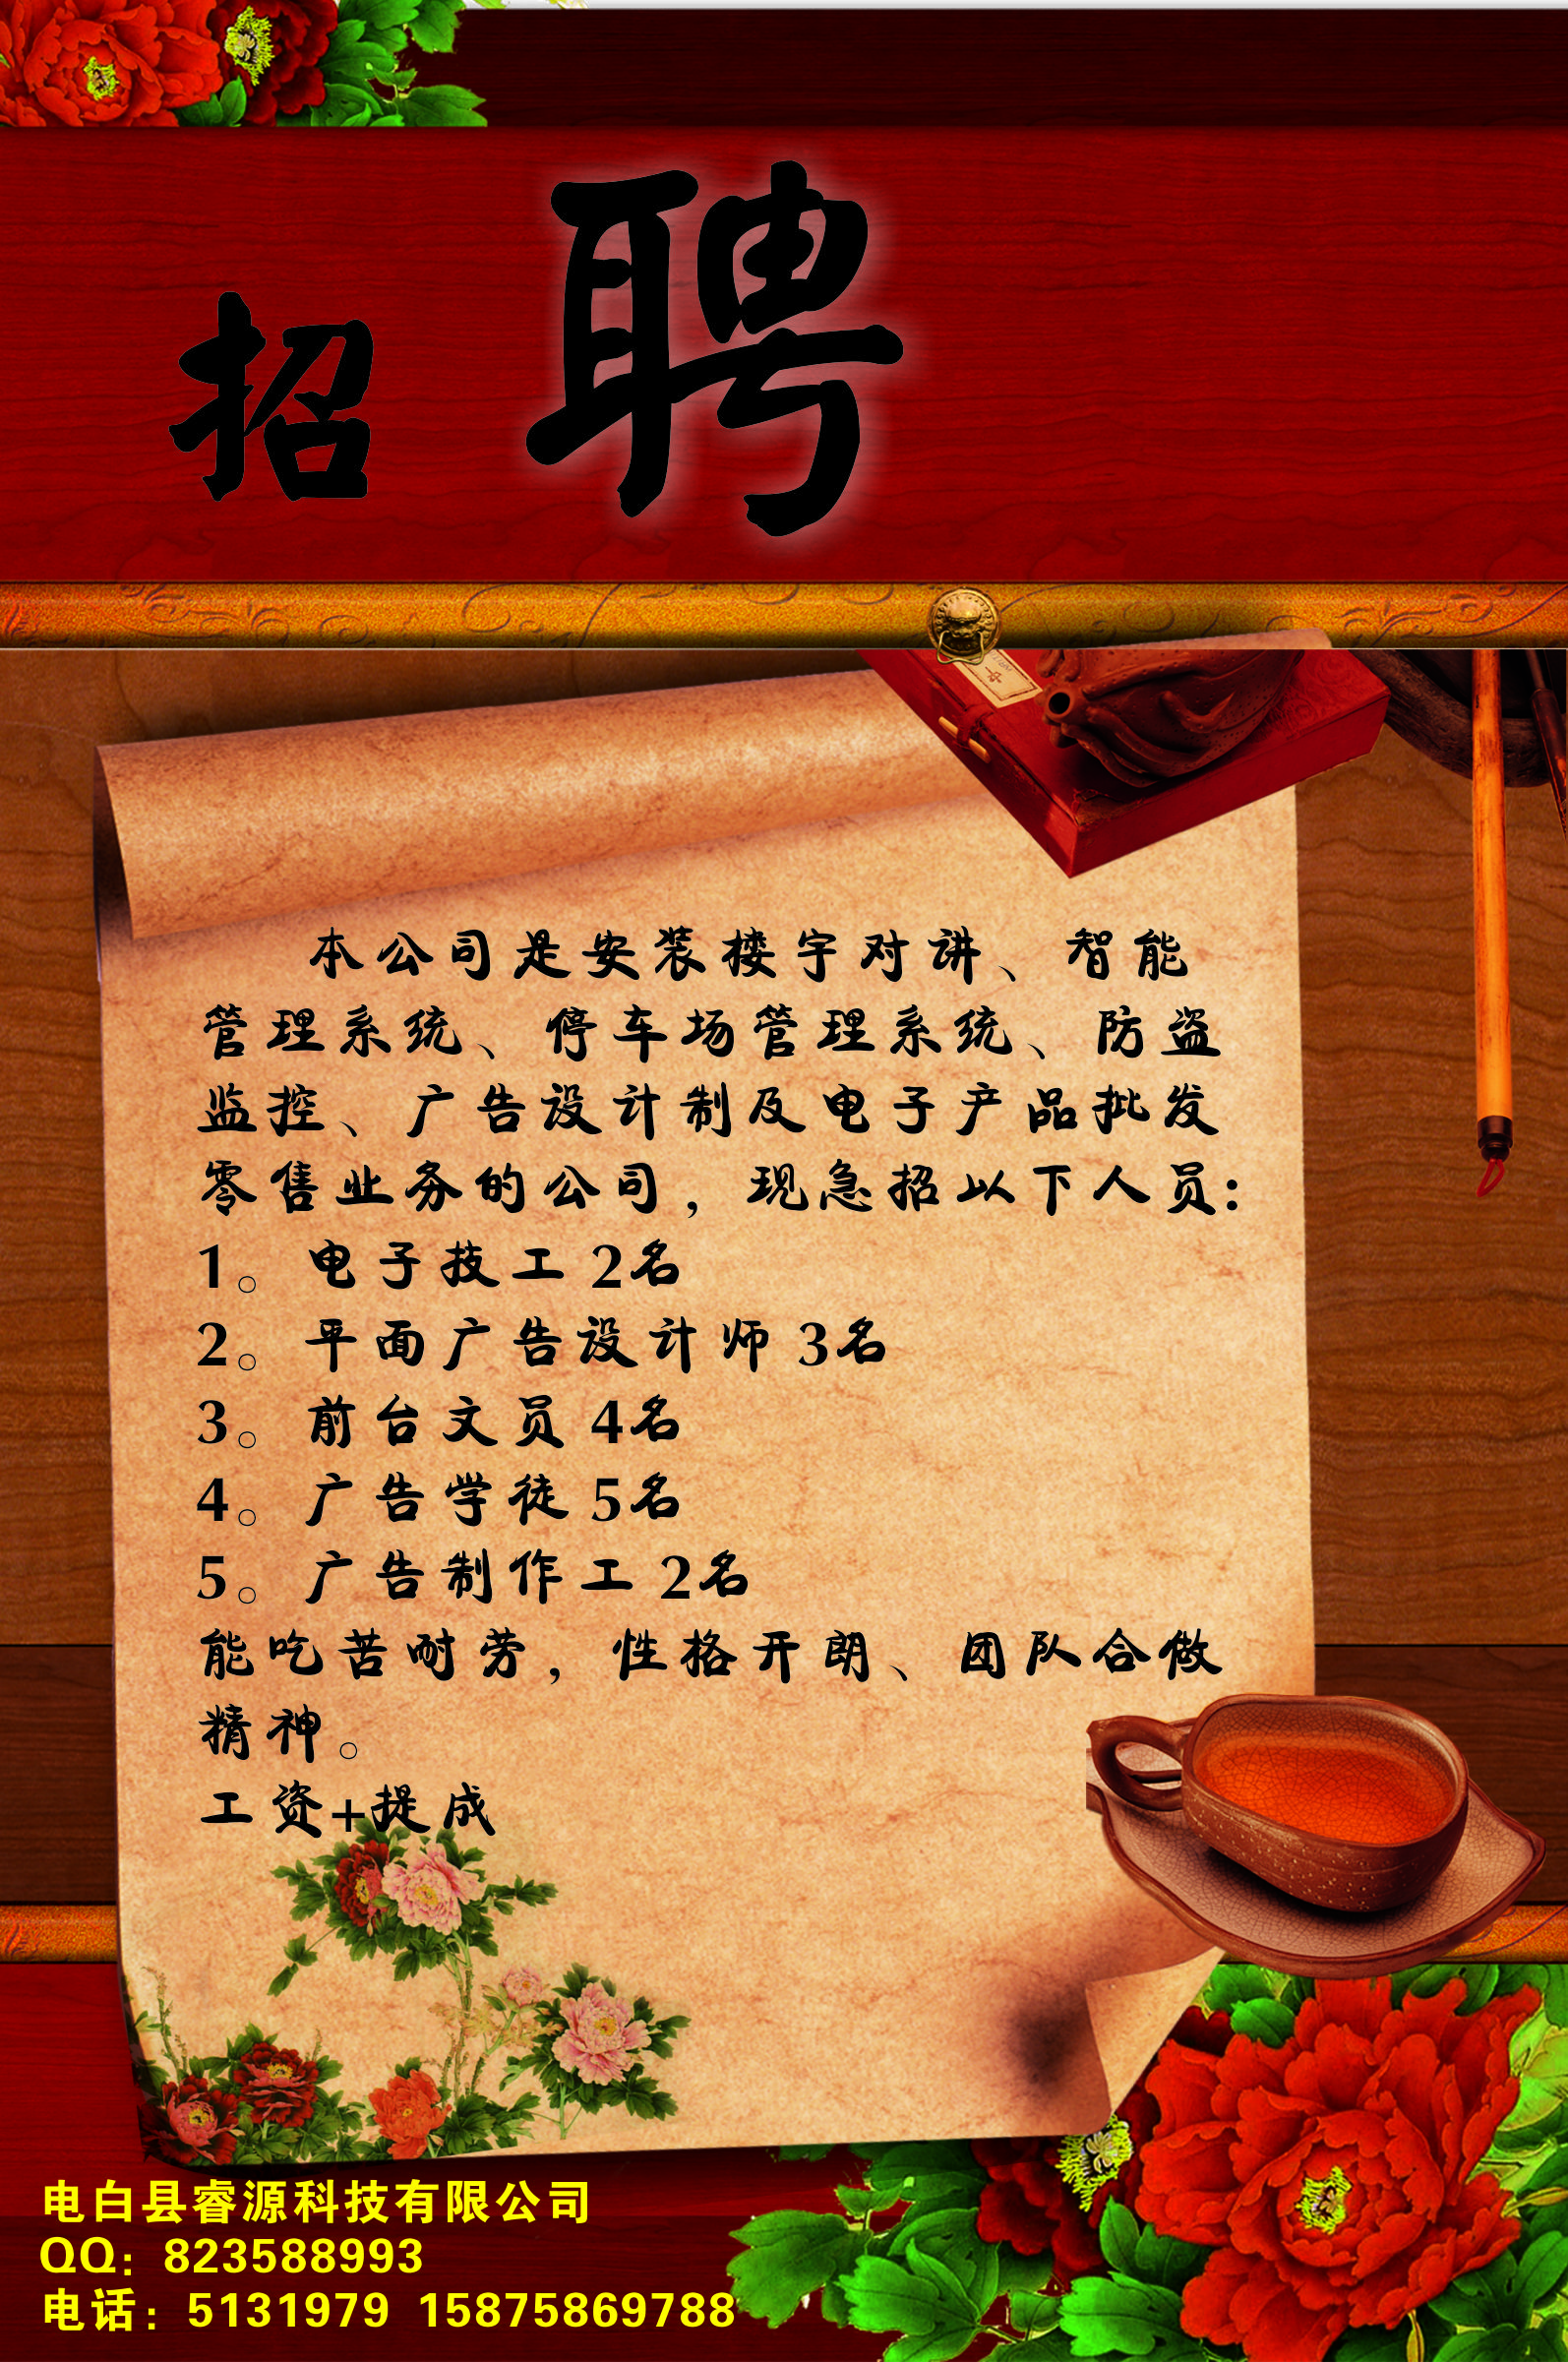 招聘
本公司是安装楼宇对讲、智能
管理系统、停车场管理系统、防盗
监控、广告设计制及电子产品批发
零售业务的公司，现急招以下人员：
1。电子技工 2名
2。平面广告设计师 3名
3。前台文员 4名
4。广告学徒 5名
5。广告制作工 2名
能吃苦耐劳，性格开朗、团队合做
精神。
工资+提成
电白县睿源科技有限公司
QQ：823588993
电话：5131979 15875869788